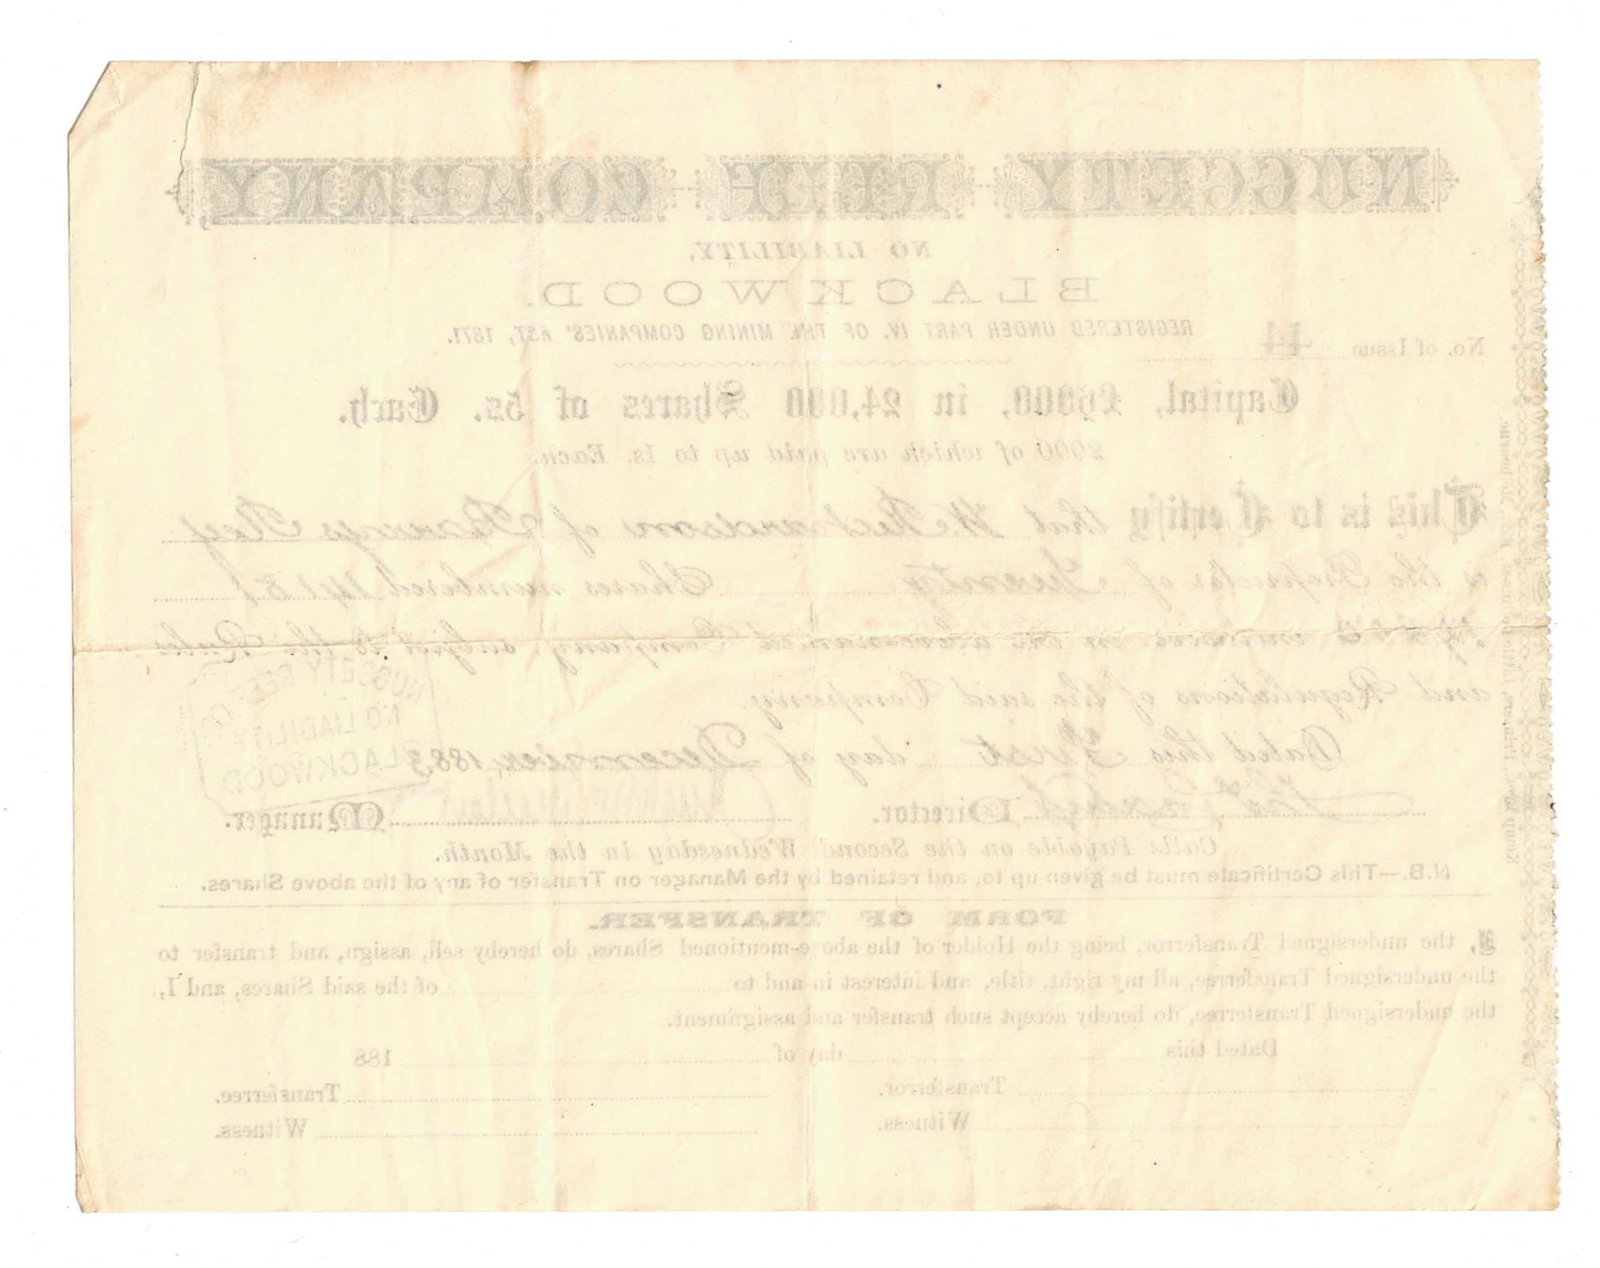 NUGGETY REEF COMPANY,
NO LIABILITY,
BLACKWOOD.
REGISTERED UNDER PART IV. OF THE MINING COMPANIES' ACT, 1871.
No. of Issue 44
Capital, £6000, in 24,000 Shares of 5s. Each.
2000 of which are paid up to 1s. Each.
This is to Certify that W. Richardson of
is the Proprietor of Twenty Shares numbered
inclusive in the abovenamed Company, subject to the Rules
and Regulations of the said Company.
NUGGETY REEF
NO LIABILITY
BLACKWOOD
Dated this First day of December, 1883
Director. Manager.
Calls Payable on the Second Wednesday in the Month.
N.B.—This Certificate must be given up to, and retained by the Manager on Transfer of any of the above Shares.
FORM OF TRANSFER.
I, the undersigned Transferror, being the Holder of the above-mentioned Shares, do hereby sell, assign, and transfer to
the undersigned Transferree, all my right, title, and interest in and to of the said Shares, and I,
the undersigned Transferree, do hereby accept such transfer and assignment.
Dated this day of 188
Transferror. Transferree.
Witness. Witness.